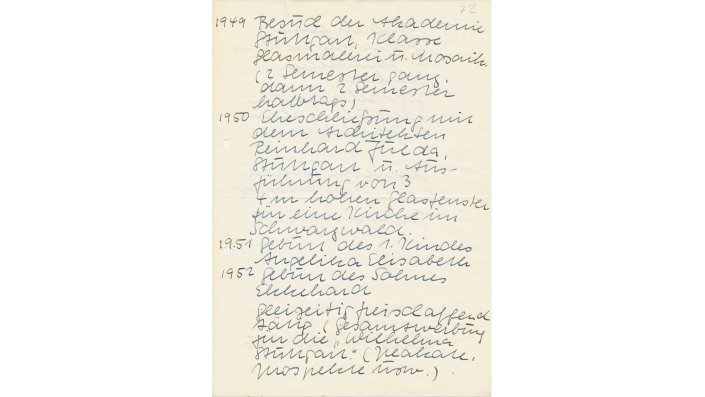 72
1949 Besuch der Akademie
Stuttgart, Klasse
Glasmalerei u. Mosaik.
(2 Semester ganz,
dann 2 Semester
halbtags)
1950 Eheschließung mit
dem Architekten
Reinhard Fulda,
Stuttgart u. Aus-
führung von 3
4 m hohen Glasfenster
für eine Kirche im
Schwarzwald.
1951 Geburt des 1. Kindes
Angelika Elisabeth
1952 Geburt des Sohnes
Ekkehard
gleizeitig freischaffend
tätig (Gesamtwerbung
für die „Wilhelma
Stuttgart." (Plakate,
Prospekte usw.)